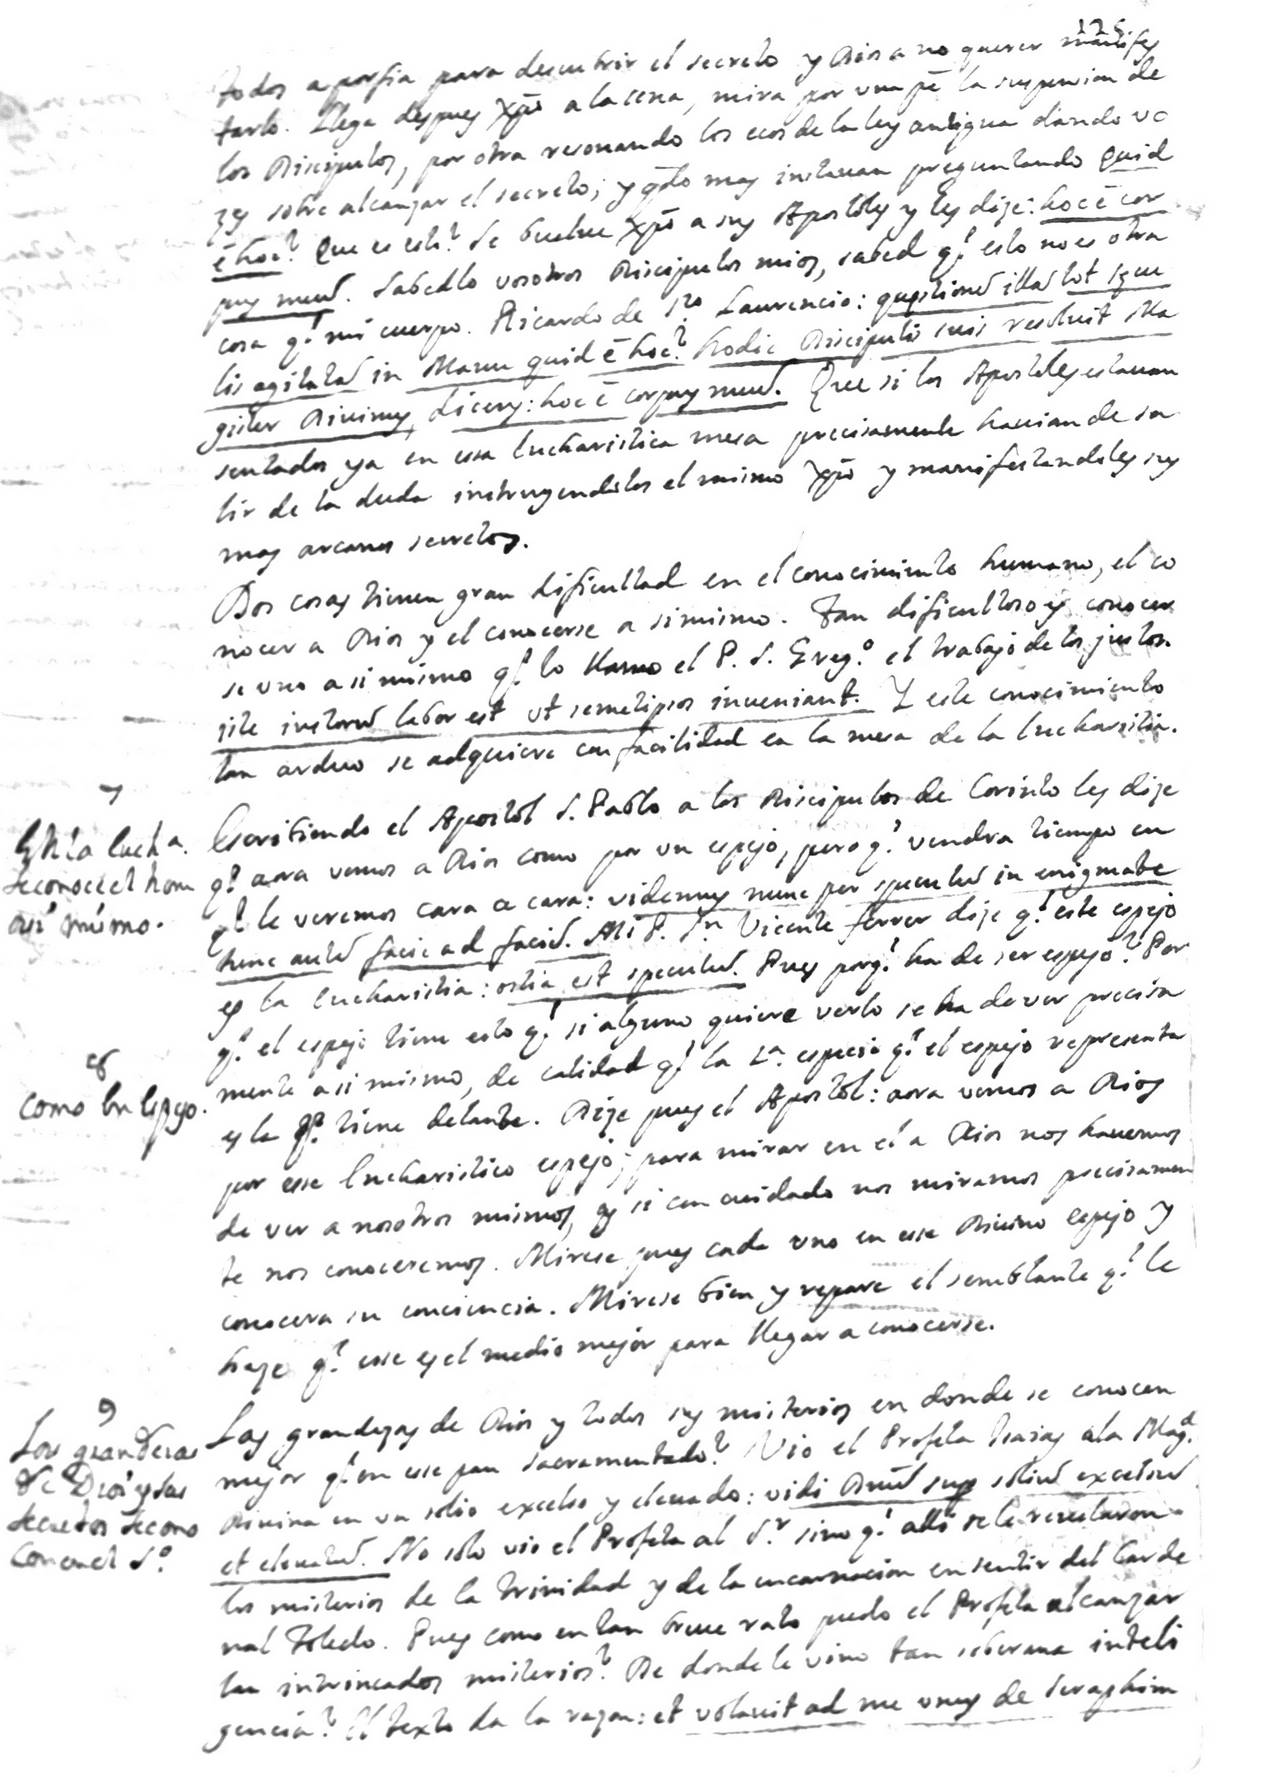 125
todos a porfia para descubrir el secreto y Dios a no querer manifes
tarlo. Llega despues Xpo a la cena, mira por una pe la suspension de
los Discipulos, por otra resonando los ecos de la ley antigua dando vo
zes sobre alcanzar el secreto; y qdo mas instauan preguntando quid
ē hoc? Que es esto? Se buelue Xpo a sus Apostoles y les dize: hoc ē cor
pus meū. Sabedlo vosotros Discipulos mios, sabed q.e esto no es otra
cosa q.e mi cuerpo. Ricardo de Sto Laurencio: questionē illā tot
lis agitatā in Manu quid ē hoc? hodie Discipulis suis resoluit Ma
gister Diuinus, dicens: hoc ē corpus meū. Que si los Apostoles estauan
sentados ya en essa Eucharistica mesa precisamente hauian de sa
lir de la duda instruyendolos el mismo Xpo y manifestandoles sus
mas arcanos secretos.
Dos cosas tienen gran dificultad en el conocimiento humano, el co
nocer a Dios y el conocerse a si mismo. Tan dificultoso es conocer
se uno a si mismo q.e lo llamo el P. S. Greg.o el trabajo de los justos.
iste iustorū labor est ut semetipsos inueniant. Y este conocimiento
tan arduo se adquiere con facilidad en la mesa de la Eucharistia.
7
En la Euch.a
se conoce el hom
a si mismo.
Escribiendo el Apostol S. Pablo a los Discipulos de Corinto les dize
q.e aora vemos a Dios como por un espejo, pero q.e vendra tiempo en
q.e le veremos cara a cara: videmus nunc per speculū in enigmate
tunc autē facie ad faciē. Mi P. Sn Vicente ferrer dize q.e este espejo
es la Eucharistia: ostia est speculū. Pues porq.e ha de ser espejo? Por
q.e el espejo tiene esto q.e si alguno quiere verlo se ha de ver precisa
mente a si mismo, de calidad q.e la 1.a especie q.e el espejo representa
es la q.e tiene delante. Dize pues el Apostol: aora vemos a Dios
8
como en Espejo.
por esse Eucharistico espejo; para mirar en el a Dios nos hauemos
de ver a nosotros mismos, y si con cuidado nos miramos precisamen
te nos conoceremos. Mirese pues cada uno en esse Diuino espejo y
conocera su conciencia. Mirese bien y repare el semblante q.e le
haze q.e esse es el medio mejor para llegar a conocerse.
9
Los grandezas
de Dios y sus
secretos se cono
cen en el S.o
Las grandezas de Dios y todos sus misterios en donde se conocen
mejor q.e en esse pan sacramentado? Vio el Profeta Isaias a la Mag.d
Diuina en un solio excelso y eleuado: vidi Dnū sup soliū excelsū
et eleuatū. No solo vio el Profeta al S.r sino q.e alli se le reuelaron
los misterios de la trinidad y de la encarnacion en sentir del Carde
nal Toledo. Pues como en tan breue rato puedo el Profeta alcanzar
tan intrincados misterios? De donde le vino tan soberana inteli
gencia? El texto da la razon: et volauit ad me unus de seraphim